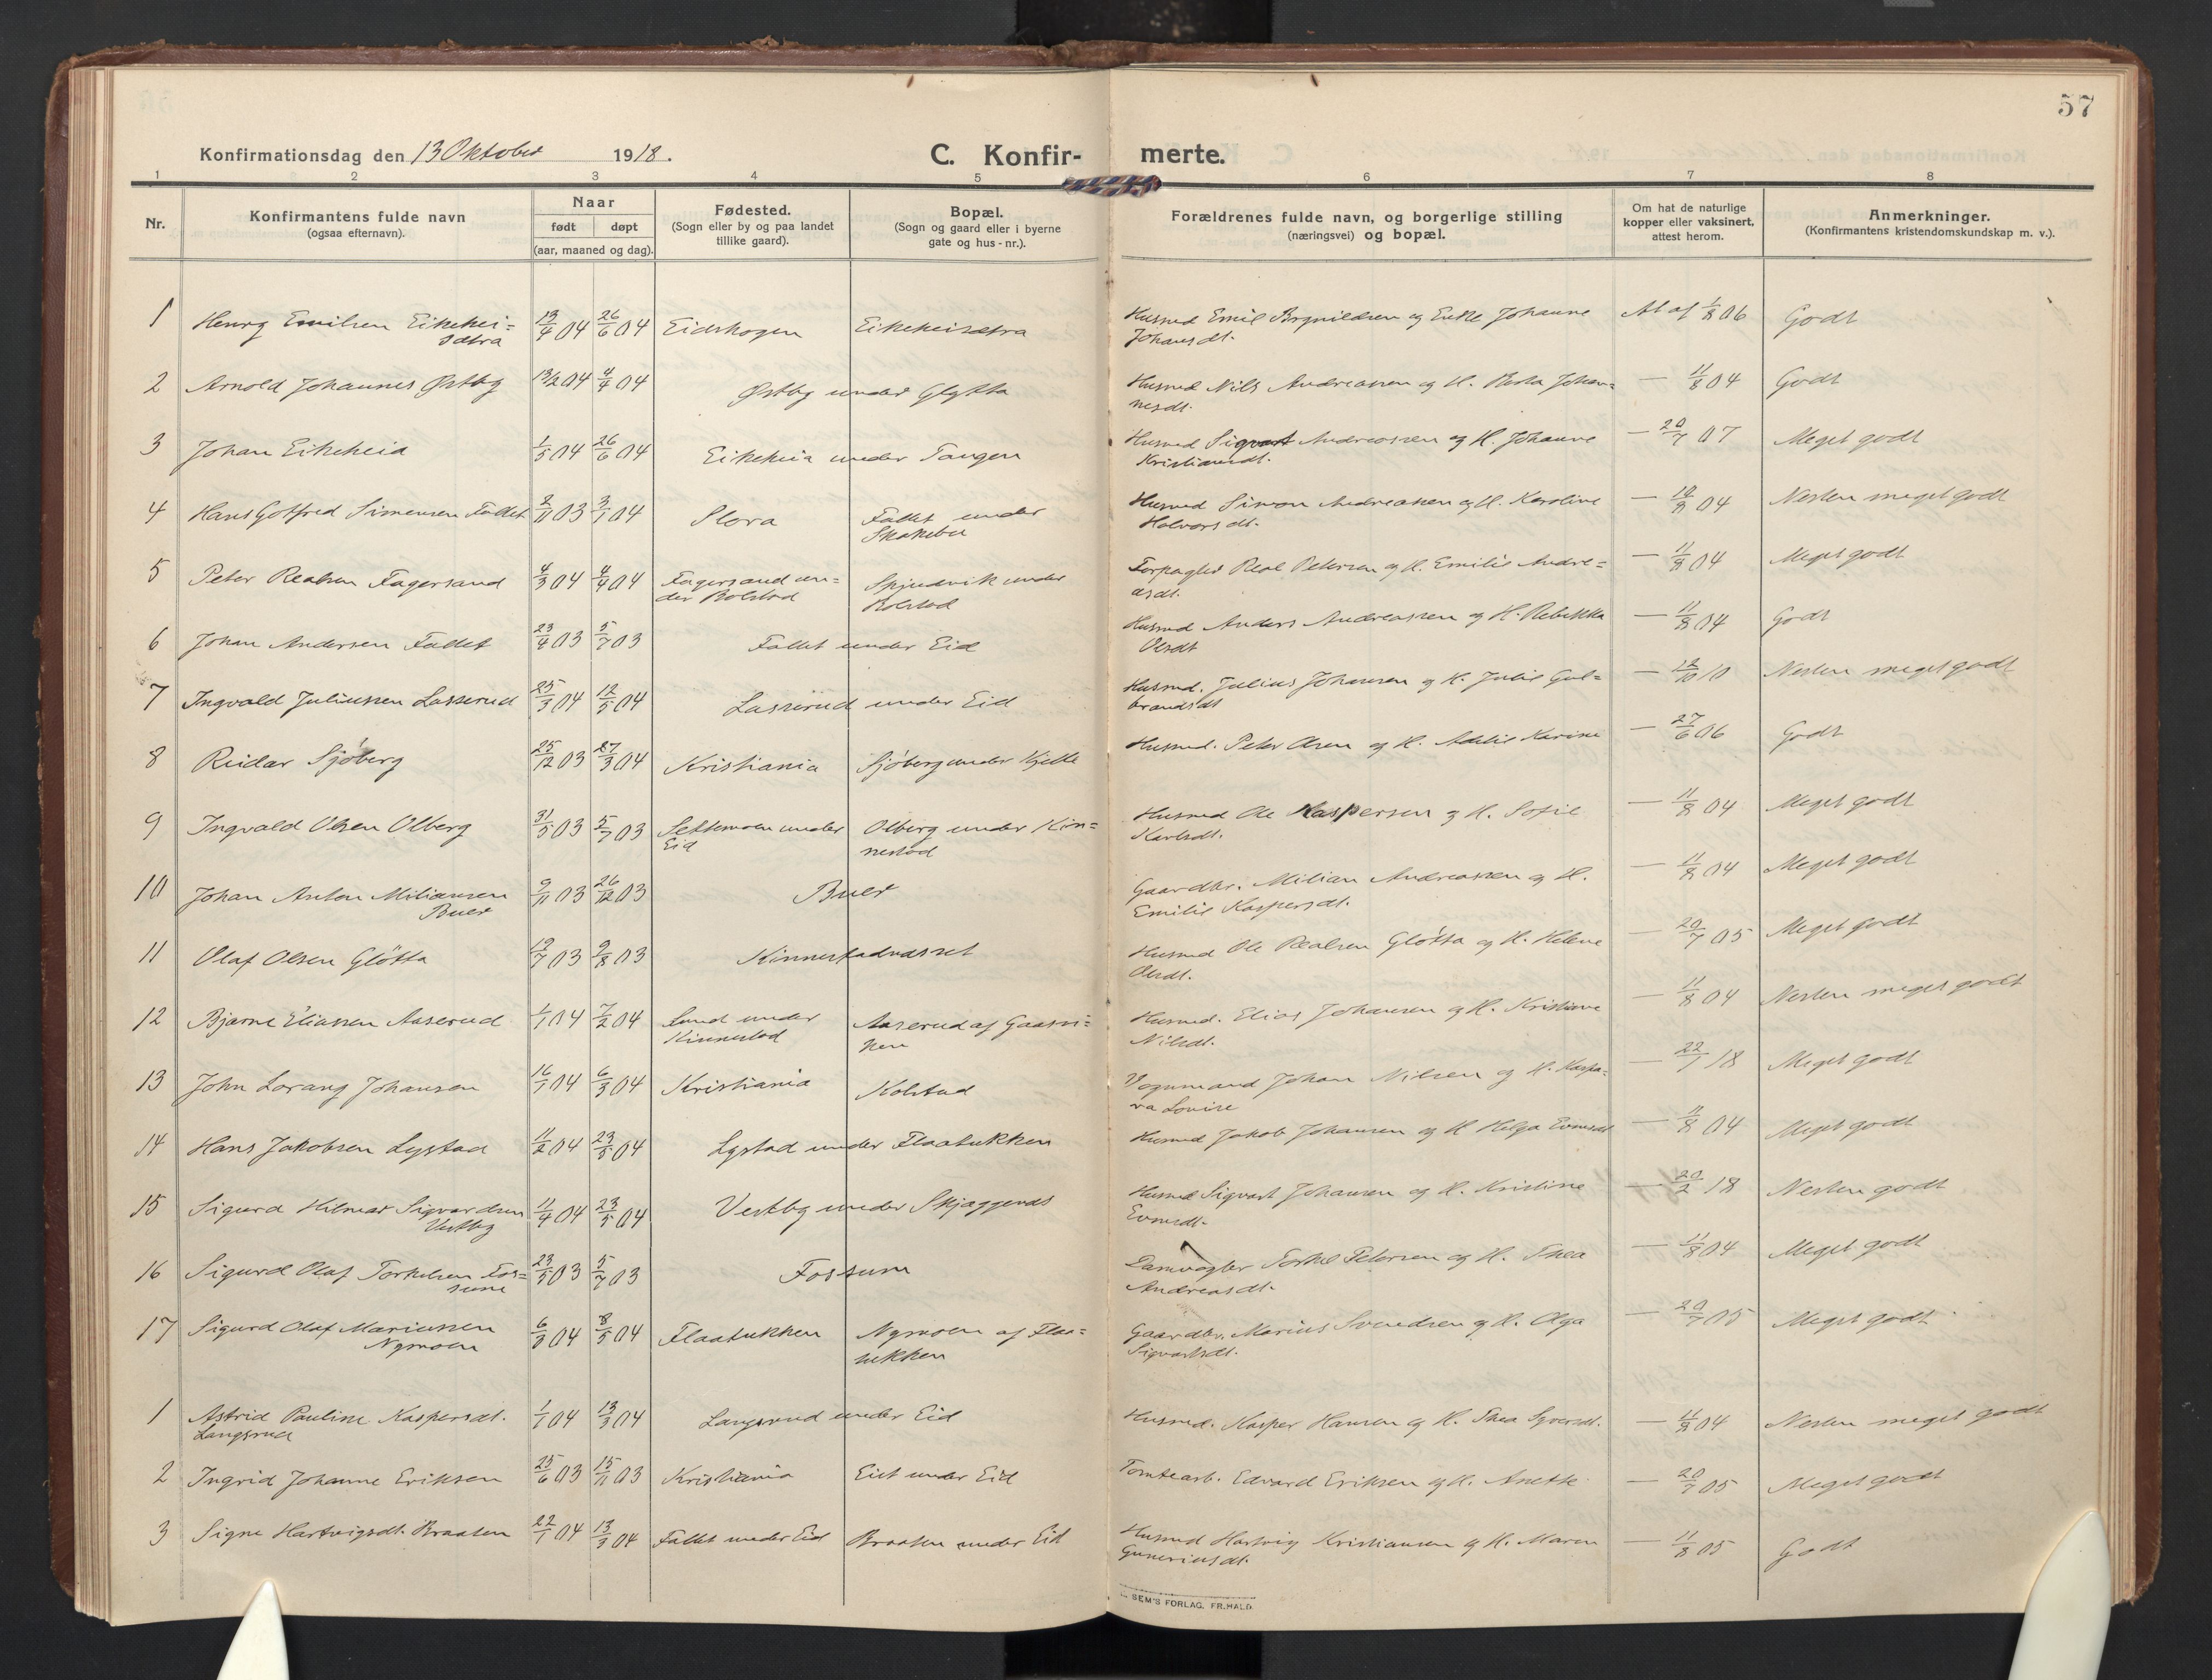 57
Konfirmationsdag den 13 Oktober 1918.
C. Konfir- merte.
1 2 3 4 5 6 7 8
Nr.
Konfirmantens fulde navn
(ogsaa efternavn).
Naar
født døpt
(aar, maaned og dag).
Fødested.
(Sogn eller by og paa landet
tillike gaard).
Bopæl.
(Sogn og gaard eller i byerne
gate og hus-nr.).
Forældrenes fulde navn, og borgerlige stilling
(næringsvei) og bopæl.
Om hat de naturlige
kopper eller vaksinert,
attest herom.
Anmerkninger.
(Konfirmantens kristendomskundskap m. v.).
1 Henry Emilsen Eikehei= 13/4 04 26/6 04 Eidskogen Eikeheisætra Husmd Emil Brynildsen og Enke Johanne At af 1/8 06 Godt
sætra Johansdt.
2 Arnold Johannes Østby 13/2 04 4/4 04 Østby under Gløtta Husmd Nils Andreassen og H. Johan= — 11/8 04 Godt
nesdt.
3 Johan Eikeheia 1/5 04 26/6 04 Eikeheia under Tangen Husmd Sigvart Andreassen og H. Johanne — 20/7 07 Meget godt
Kristiansdt.
4 Hans Gotfred Simensen Fallet 2/11 03 3/1 04 Slora Fallet under Husmd Simon Andreassen og H. Karoline — 12/8 04 Nesten meget godt
Skakebu Halvorsdt.
5 Peter Realsen Fagersand 4/3 04 4/4 04 Fagersand un= Spindvik under Forpagter Real Petersen og H. Emilie Andre= — 11/8 04 Meget godt
der Bolstad Bolstad asdt.
6 Johan Andersen Fallet 23/4 03 5/7 03 Fallet under Eid Husmd Anders Andreassen og H. Rebekka — 11/8 04 Godt
Olsdt
7 Ingvald Juliussen Lasserud 25/3 04 12/5 04 Lasserud under Eid Husmd. Julius Johansen og H. Julie Gul= — 12/10 10 Nesten meget godt
brandsdt
8 Reidar Sjöberg 25/12 03 27/3 04 Kristiania Sjöberg under Kjelle Husmd. Peter Olsen og H. Adelie Karine — 27/6 06 Godt
9 Ingvald Olsen Olberg 31/5 03 5/7 03 Settemoen under Olberg under Kin= Husmd Ole Kaspersen og H. Sofie — 11/8 04 Meget godt
Eid nestad Karlsdt.
10 Johan Anton Miliansen 9/11 03 26/12 03 Buer Gaardbr. Milian Andreassen og H. — 11/8 04 Meget godt
Buer Emilie Kaspersdt.
11 Olaf Olsen Glötta 12/7 03 9/8 03 Kinnestadvasset Husmd Ole Realsen Glötta og H. Helene — 20/7 05 Meget godt
Olsdt.
12 Bjarne Eliassen Aaserud 1/1 04 7/2 04 Lund under Aaserud af Gaasvi= Husmd. Elias Johansen og H. Kristiane — 11/8 04 Nesten meget godt
Kinnestad ken Nilsdt.
13 John Lorang Johansen 16/1 04 6/3 04 Kristiania Kolstad Vognmand Johan Nilsen og H. Kaspa= — 22/1 18 Meget godt
ra Lovise
14 Hans Jakobsen Lystad 11/2 04 23/5 04 Lystad under Flaatukken Husmd Jakob Johansen og H Helga Evensdt — 11/8 04 Meget godt
15 Sigurd Hilmar Sigvardsen 11/4 04 23/5 04 Vestby under Skjaggerud Husmd Sigvart Johansen og H. Kristine — 20/2 18 Nesten godt
Vestby Evensdt.
16 Sigurd Olaf Torkelsen Fos= 23/5 03 5/7 03 Fossum Damvogter Torkel Petersen og H. Thea — 11/8 04 Meget godt
sum Andreasdt.
17 Sigurd Olaf Mariussen 6/3 04 8/5 04 Flaatukken Nymoen af Flaa= Gaardbr. Marius Svendsen og H. Olga — 20/7 05 Meget godt
Nymoen tukken Sigvartsdt.
1 Astrid Pauline Kaspersdt. 1/1 04 13/3 04 Langsrud under Eid Husmd. Kasper Hansen og H. Thea Syversdt. — 11/8 04 Nesten meget godt
Langsrud
2 Ingrid Johanne Eriksen 25/6 03 15/11 03 Kristiania Eid under Eid Tomtearb. Edvard Eriksen og H. Anette — 20/7 05 Meget godt
3 Signe Hartvigsdt. Braaten 22/1 04 13/3 04 Fallet under Eid Braaten under Eid Husmd Hartvig Kristiansen og H. Maren — 11/8 05 Godt
Guneriusdt.
SEM'S FORLAG, FR.HALD